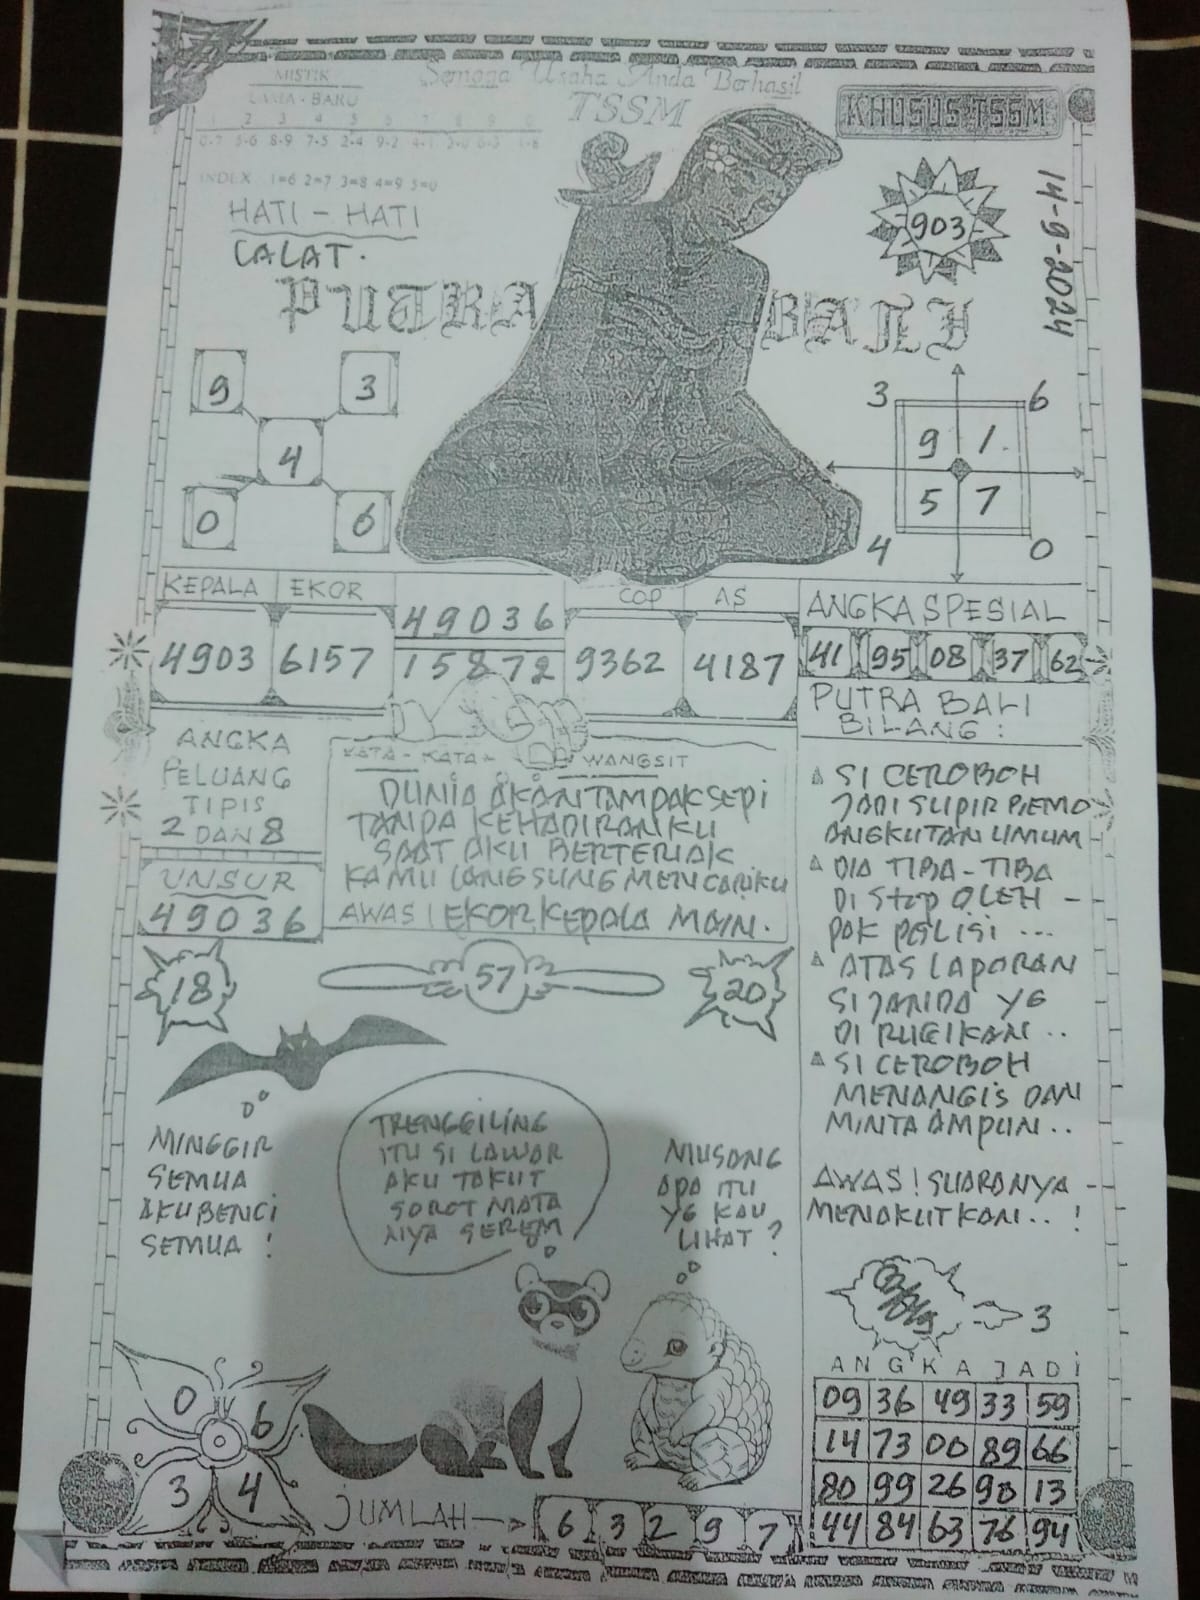 MISTIK
LAMA - BARU
1 2 3 4 5 6 7 8 9 0
0-7 5-6 8-9 7-5 2-4 9-2 4-1
INDEX 1=6 2=7 3=8 4=9 5=0
Semoga Usaha Anda Berhasil
TSSM
KHUSUS TSSM
14-9-2024
903
HATI - HATI
CALAT.
PUTRA BALI
9 3
4
0 6
3 6
9 1
5 7
4 0
KEPALA EKOR
4903 6157
49036
15872
COP AS
9362 4187
ANGKA SPESIAL
41 95 08 37 62
PUTRA BALI
BILANG :
SI CEROBOH
JADI SUPIR BEMO
ANGKUTAN UMUM -
DIA TIBA - TIBA
DI STOP OLEH -
PAK POLISI ...
ATAS LAPORAN
SI JANDA YG
DI RUGIKAN ..
SI CEROBOH
MENANGIS DAN
MINTA AMPUN ..
AWAS ! SUARANYA -
MENAKUTKAN .. !
ANGKA
PELUANG
TIPIS
2 DAN 8
UNSUR
49036
KATA - KATA - WANGSIT
DUNIA AKAN TAMPAK SEPI
TANPA KEHADIRANKU
SAAT AKU BERTERIAK
KAMU LANGSUNG MENCARIKU
AWAS ! EKOR, KEPALA MAIN.
18
57
20
MINGGIR
SEMUA
AKU BENCI
SEMUA !
TRENGGILING
ITU SI LAWAR
AKU TAKUT
SOROT MATA
NYA SEREM
MUSANG
APA ITU
YG KAU
LIHAT ?
3
ANGKA JADI
09 36 49 33 59
14 73 00 89 66
80 99 26 90 13
44 84 63 76 94
0 6
3 4
JUMLAH
6 3 2 9 7